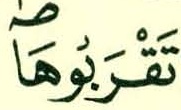 تَقْرَبُوهَاؕ